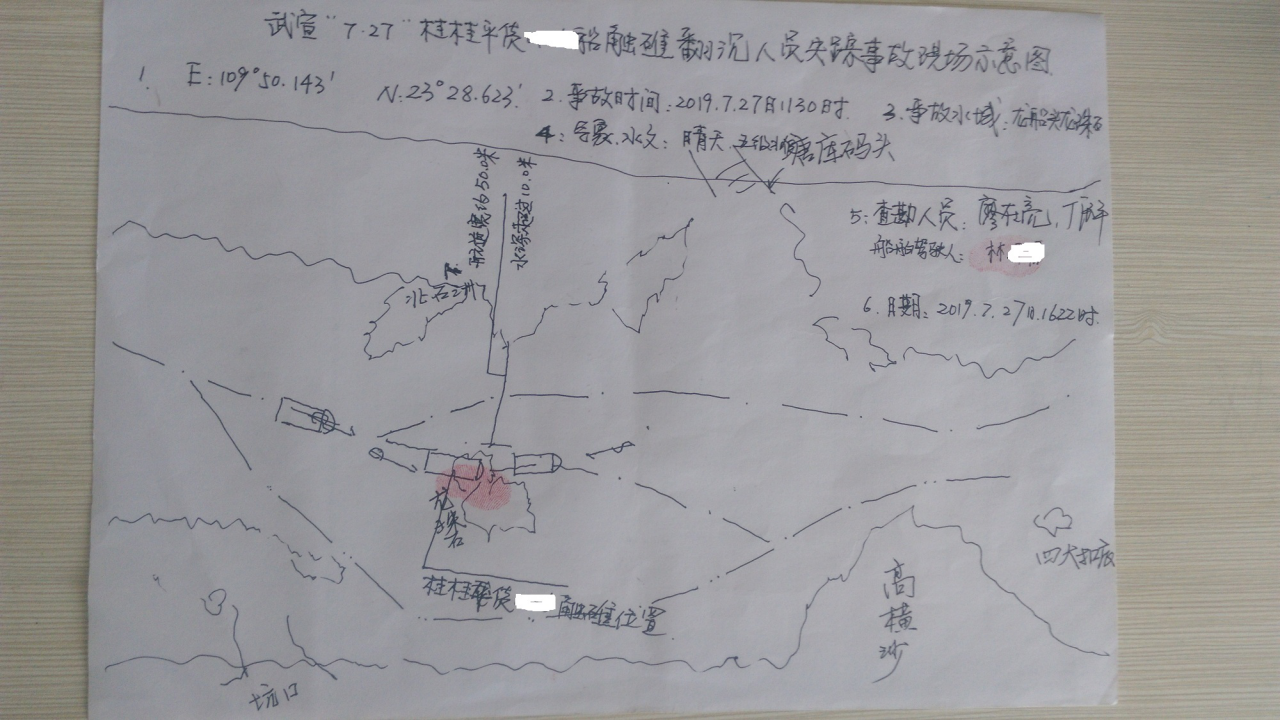 武宣"7.27"桂桂平货 船触礁翻沉人员失踪事故现场示意图
1. E:109°50.143' N:23°28.623' 2.事故时间:2019.7.27日1130时. 3.事故水域:龙船头龙珠石
4:气象.水文:晴天 库码头
航道宽约50.0米
水深超过10.0米
5:查勘人员:
船舶驾驶人:林
6.日期:2019.7.27日.1622时.
北石洲
龙珠石
桂桂平货 触礁位置
高横沙
坑口